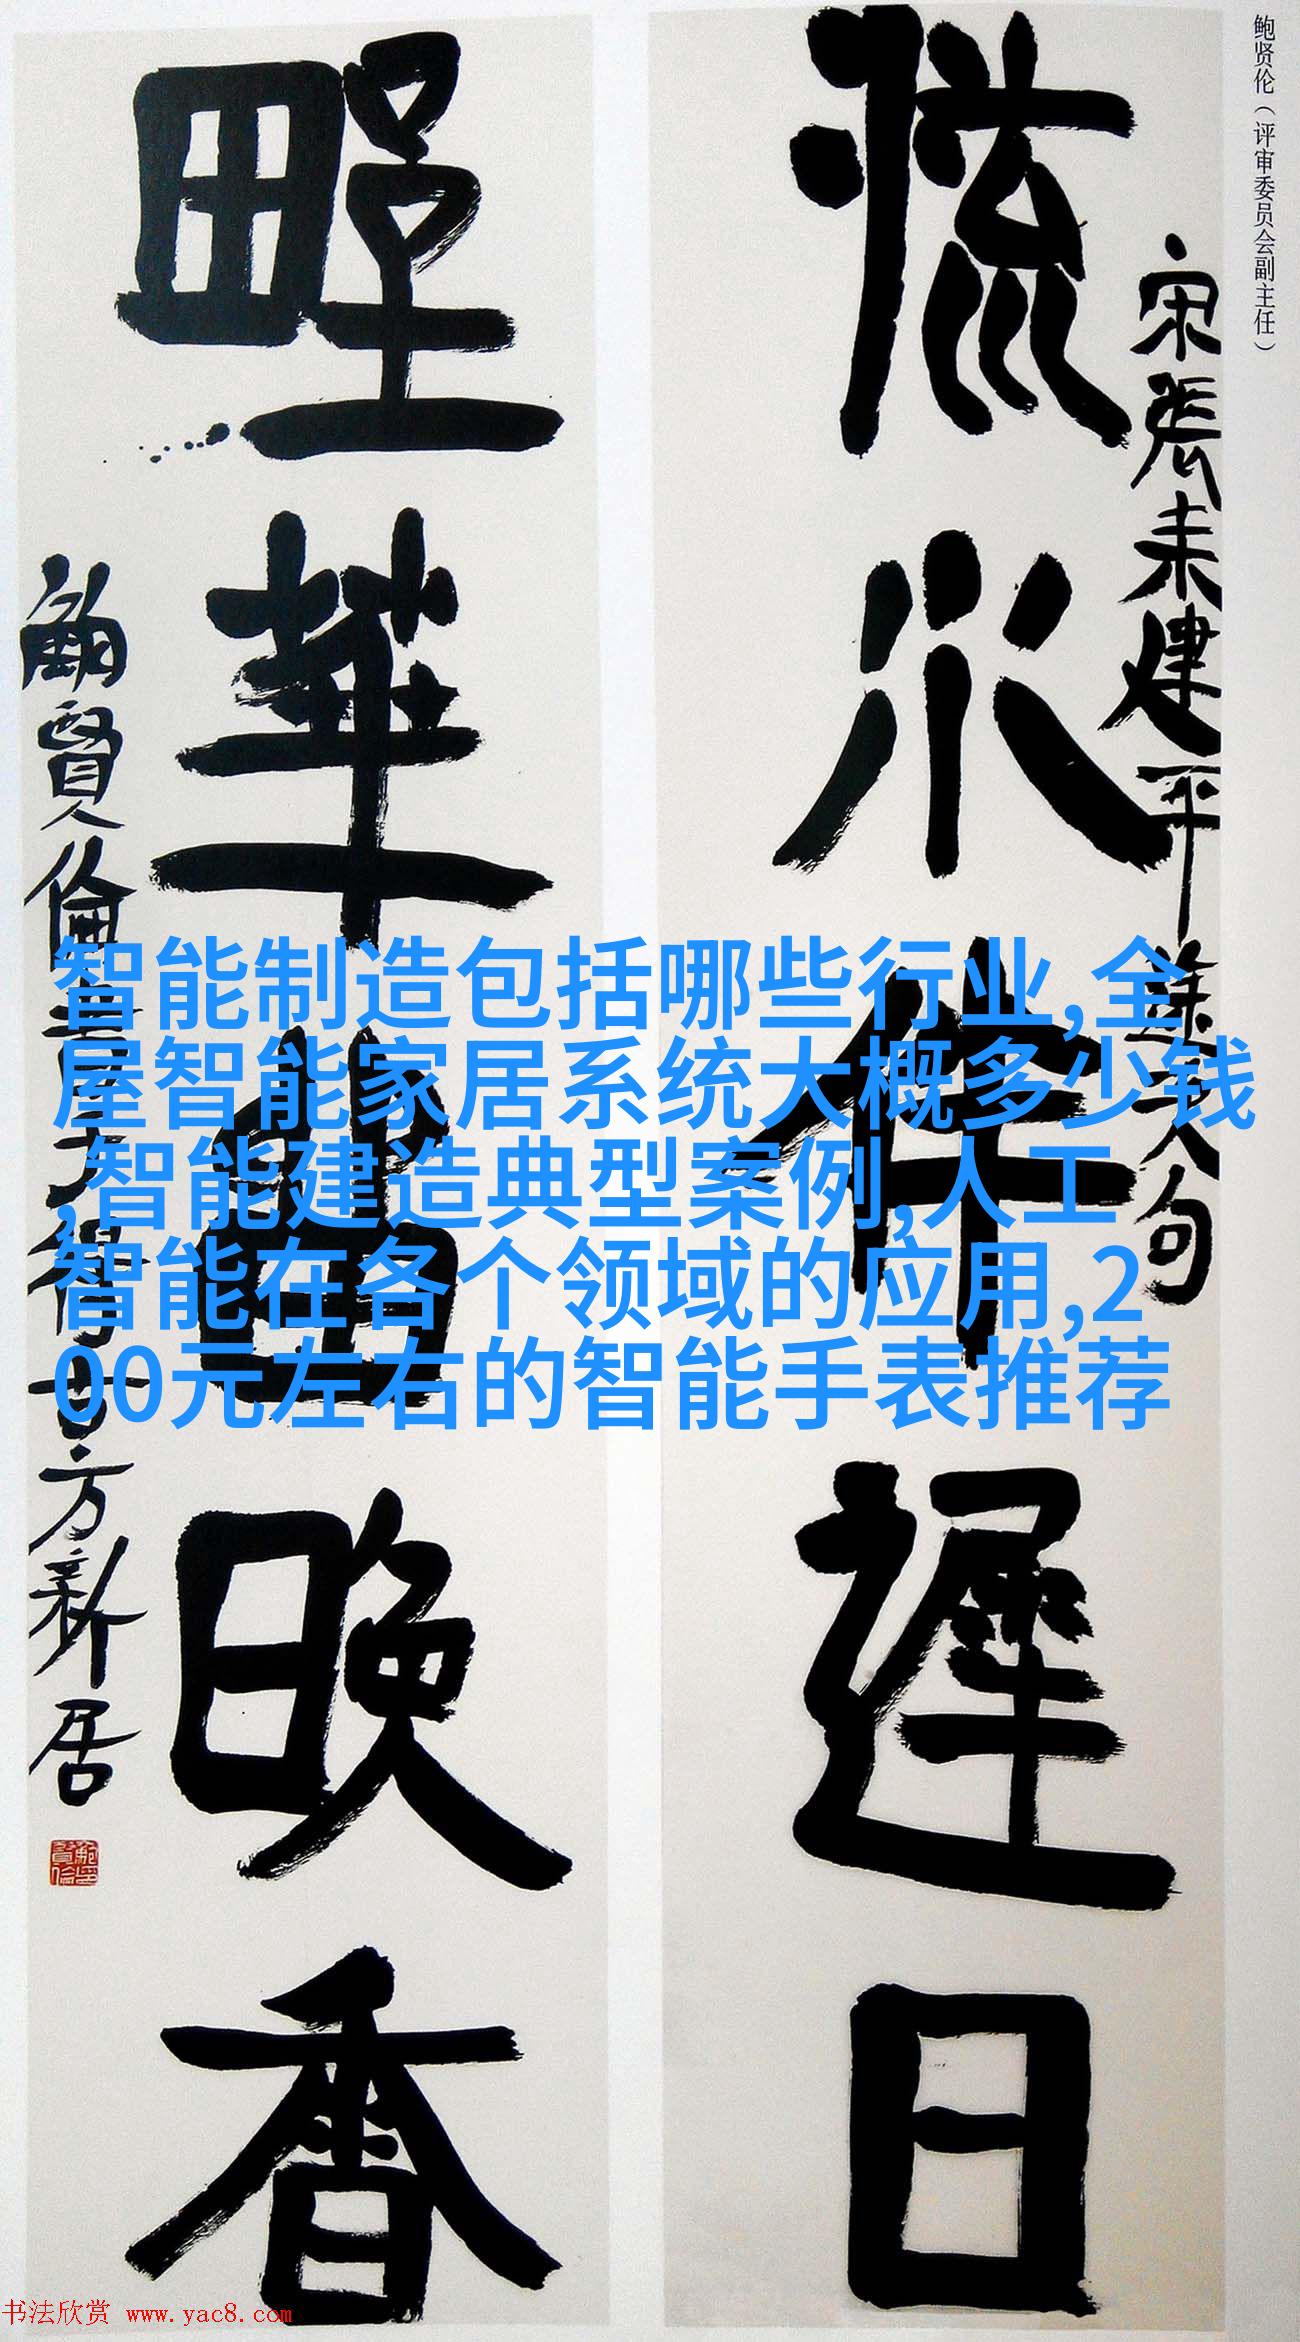 鲍贤伦（评审委员会副主任）
宋张耒建平途次句
流水伴遲日
野華留晚香
鮑賢倫書于得古方新居
智能制造包括哪些行业,全
屋智能家居系统大概多少钱
,智能建造典型案例,人工
智能在各个领域的应用,2
00元左右的智能手表推荐
书法欣赏 www.yac8.com